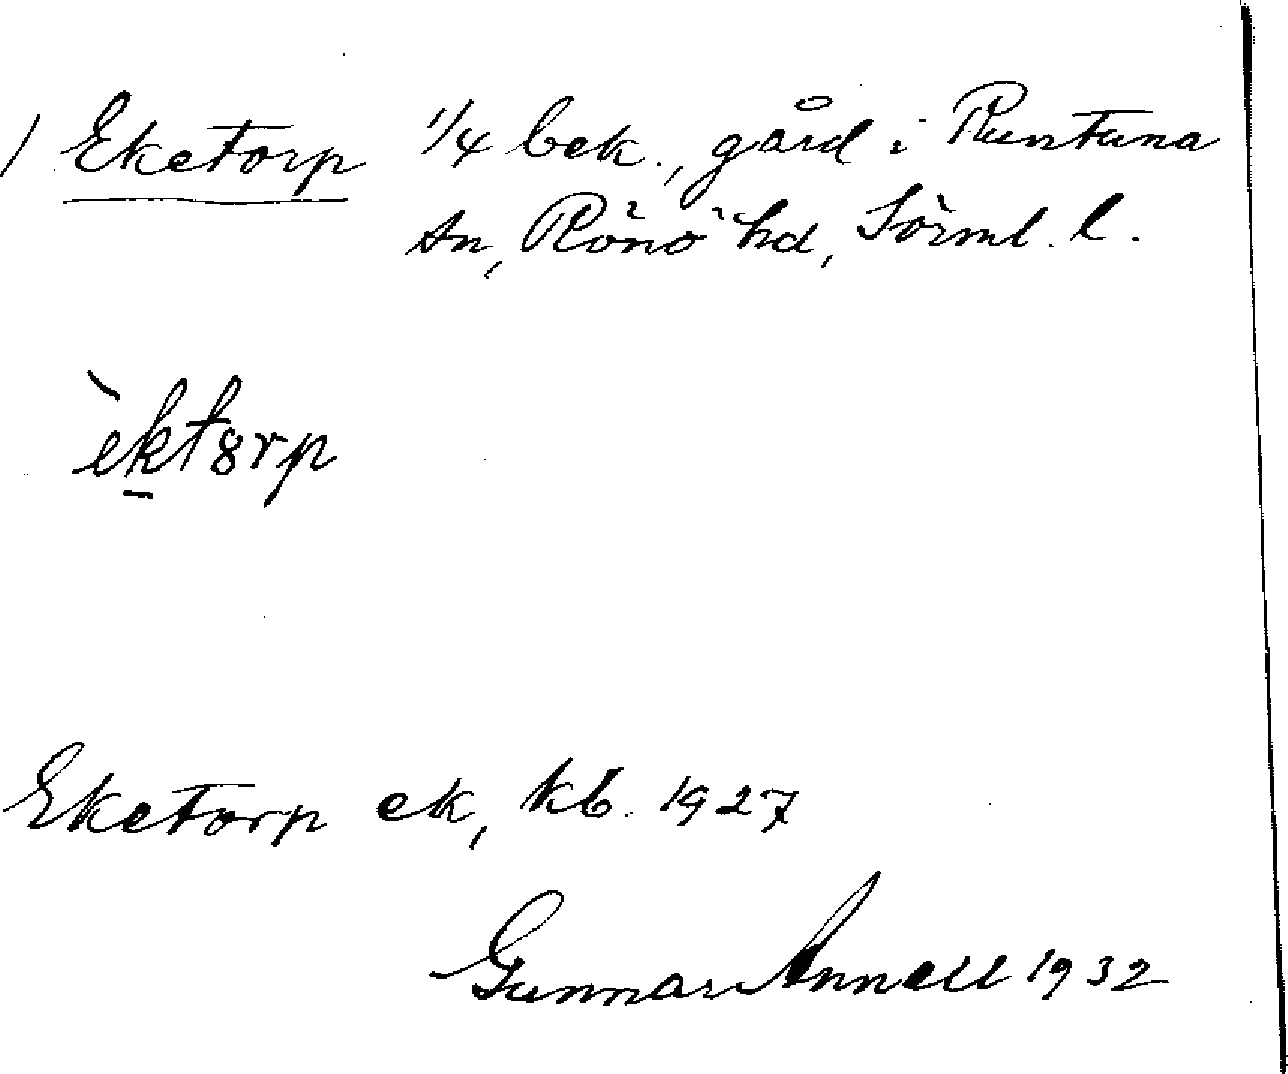 / Eketorp 1/4 bek., gård i Runtuna
sn, Rönö hd, Sörml. l.
èktȣrp
Eketorp ek, kb. 1927
Gunnar Annell 1932